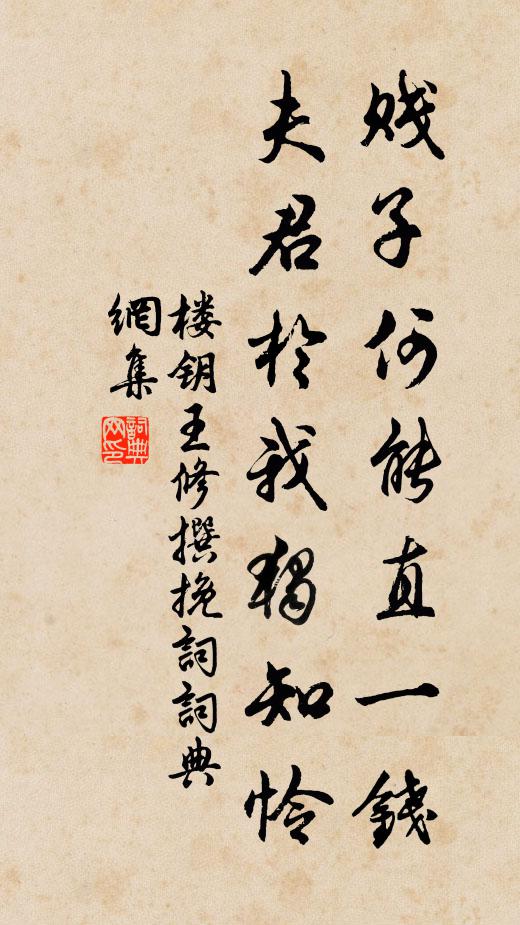 贱子何能直一錢
夫君於我獨知怜
楼钥王修撰挽詞詞典
網集
詞典
网印